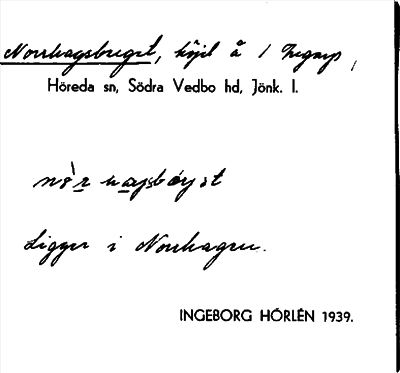 Norrhagsberget, höjd å 1
Höreda sn, Södra Vedbo hd, Jönk. l.
Ligger i Norrhagen.
INGEBORG HÖRLÉN 1939.